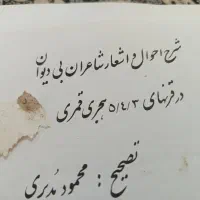 شرح احوال و اشعار شاعران بی دیوان
در قرنهای ۵/۴/۳ هجری قمری
تصحیح : محمود مدبری